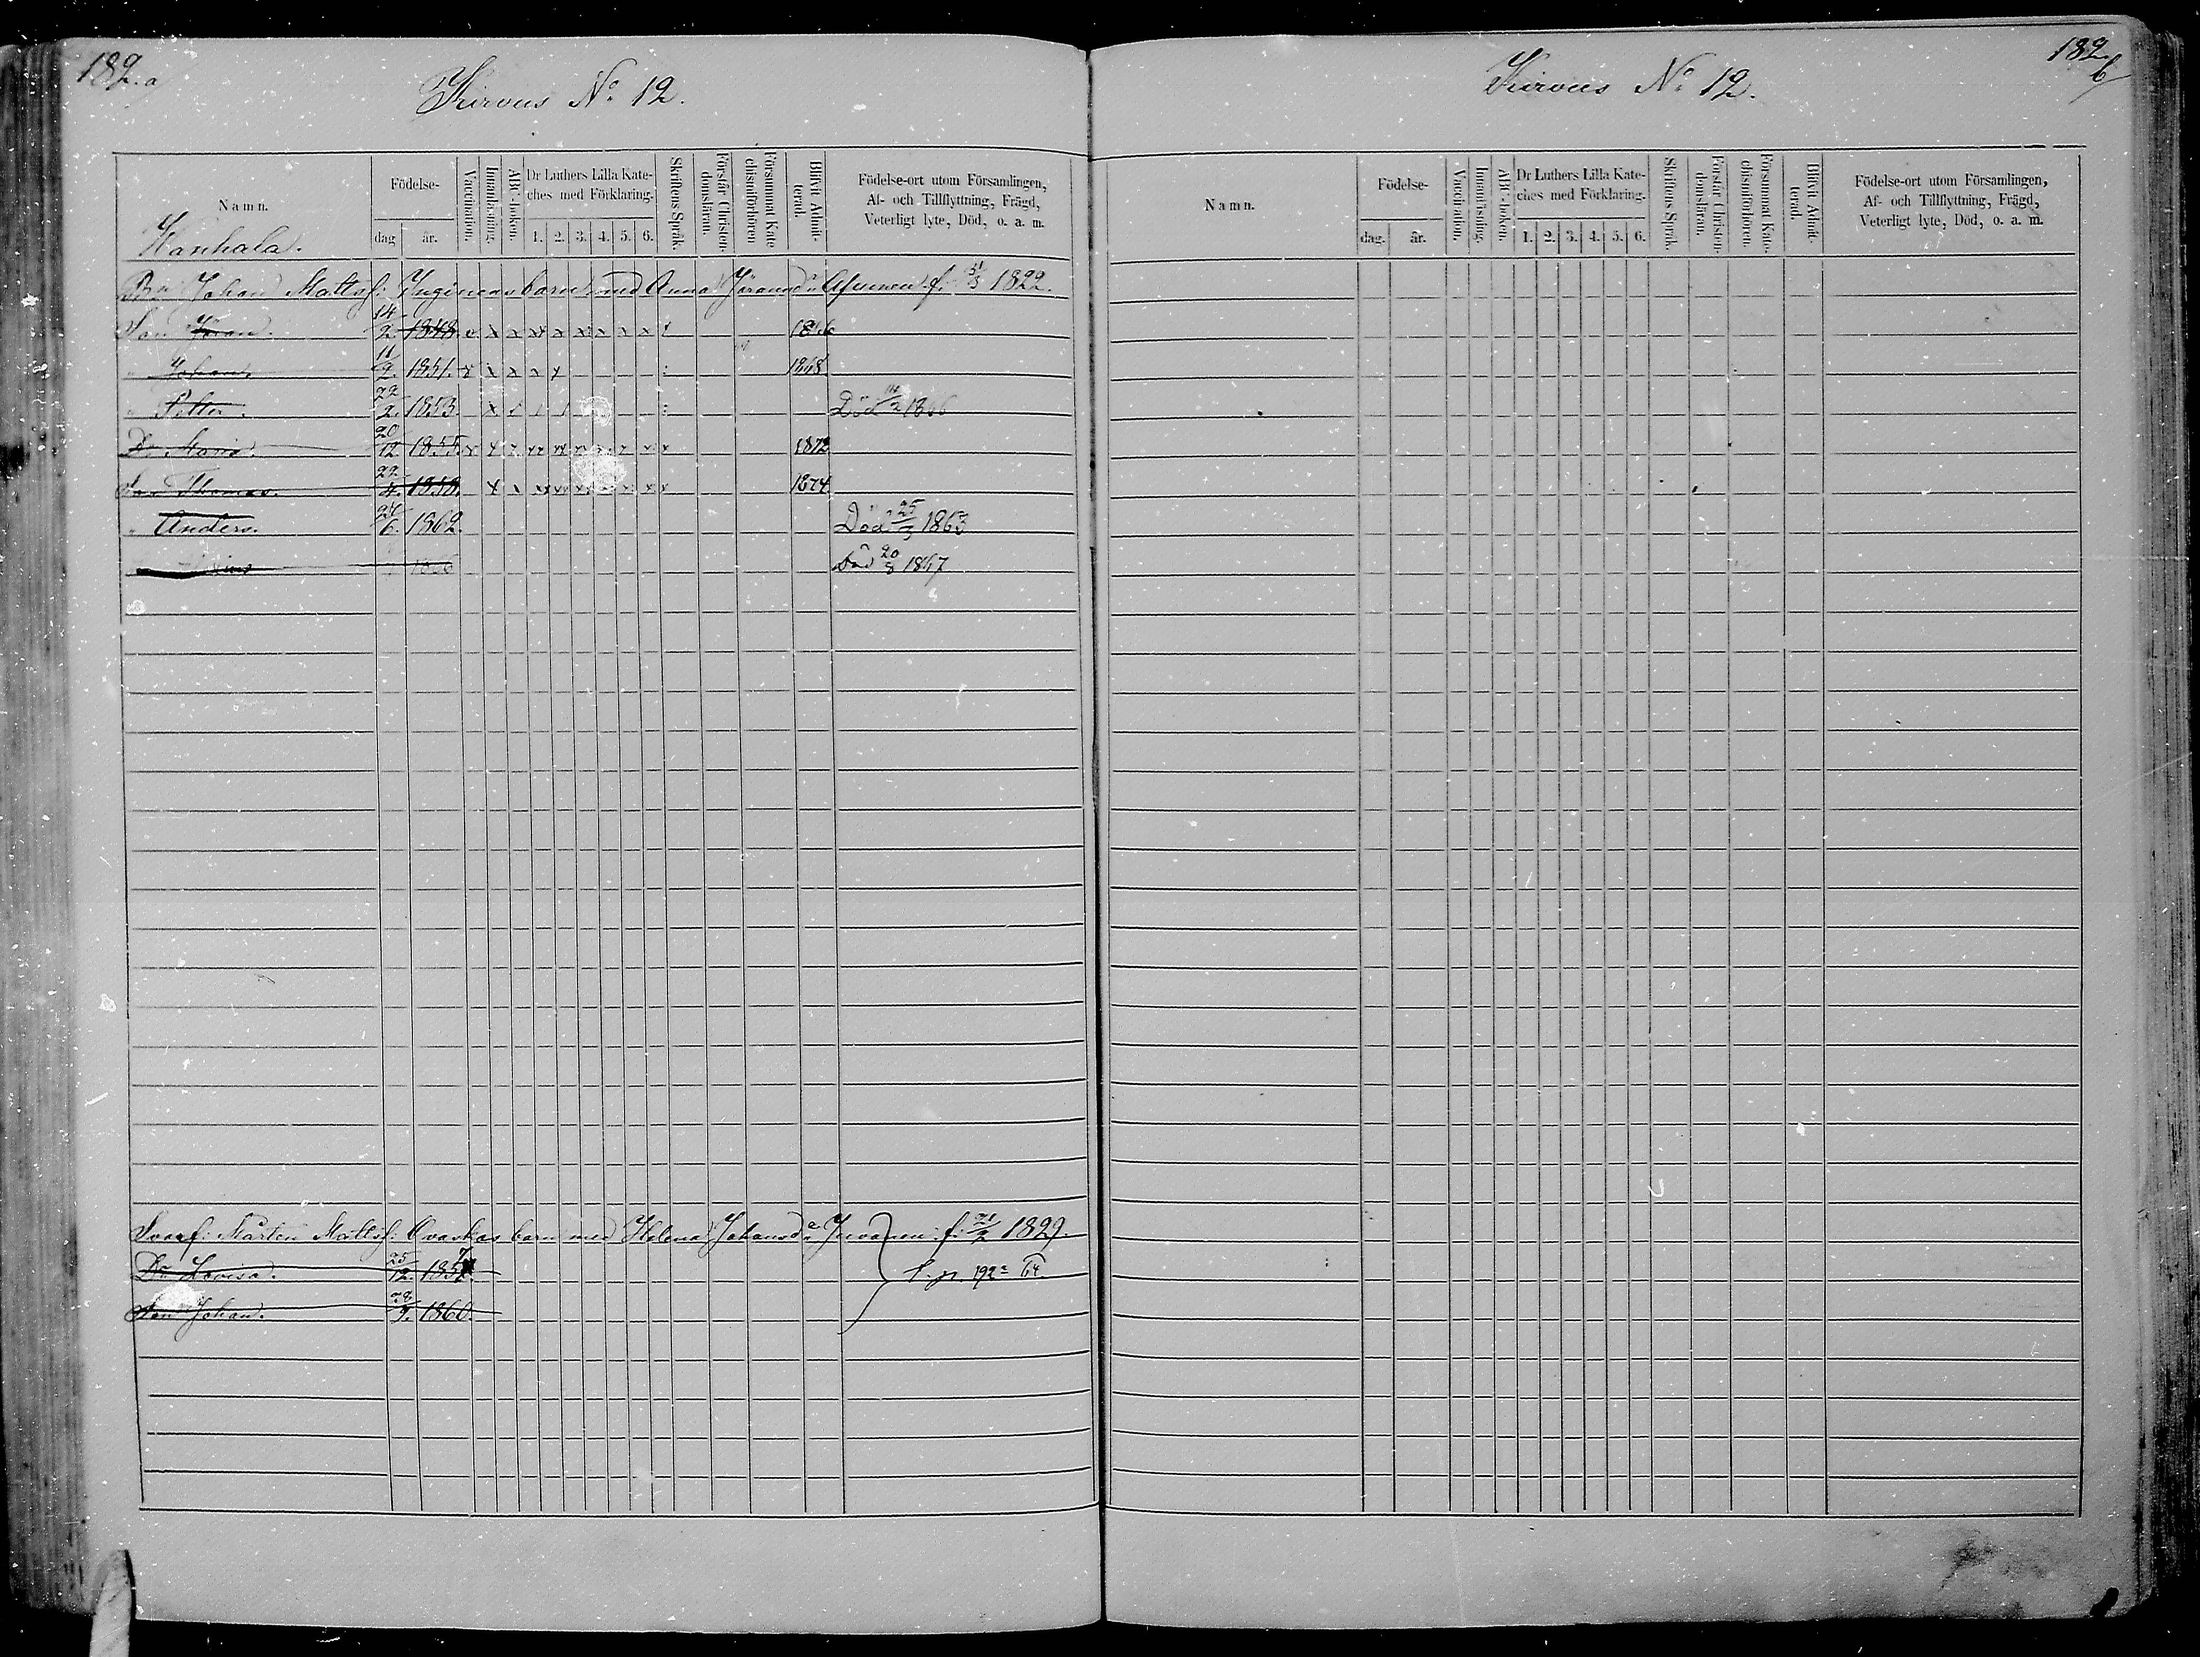 182.a
Kirvus No 12.
Namn.
Födelse-
dag
år.
Vaccination.
Innanläsning.
ABC-boken.
Dr Luthers Lilla Kate-
ches med Förklaring.
1. 2. 3. 4. 5. 6.
Skriftens Språk.
Förstår Christen-
domsläran.
Försummat Kate-
chismiförhören
Blifvit Admit-
terad.
Födelse-ort utom Församlingen,
Af- och Tillflyttning, Frägd,
Veterligt lyte, Död, o. a. m.
Kanhala.
Johan Mattsf: barn med Anna Göransdr f. 1822.
Son Göran. 14/2. 1848. 1866
" Johan. 11/9. 1851. 1868
" Petter. 22/2. 1853 Död 1866
Dr Maria. 20/12 1855. 1872
Son Thomas. 22/4. 1858. 1874
" Anders. 24/6. 1862. Död 25/3 1863
Död 20/8 1867
Mårten Mattsf: Ovaskas barn med Helena Johansdr f. 21/2 1829.
Dr Lovisa. 25/12. 1857 S. p. 192
Son Johan. 28/9. 1860.
182.
b
Kirvus No 12.
Namn.
Födelse-
dag.
år.
Vaccination.
Innanläsning.
ABC-boken.
Dr Luthers Lilla Kate-
ches med Förklaring.
1. 2. 3. 4. 5. 6.
Skriftens Språk.
Förstår Christen-
domsläran.
Försummat Kate-
chismiförhören.
Blifvit Admit-
terad.
Födelse-ort utom Församlingen,
Af- och Tillflyttning, Frägd,
Veterligt lyte, Död, o. a. m.